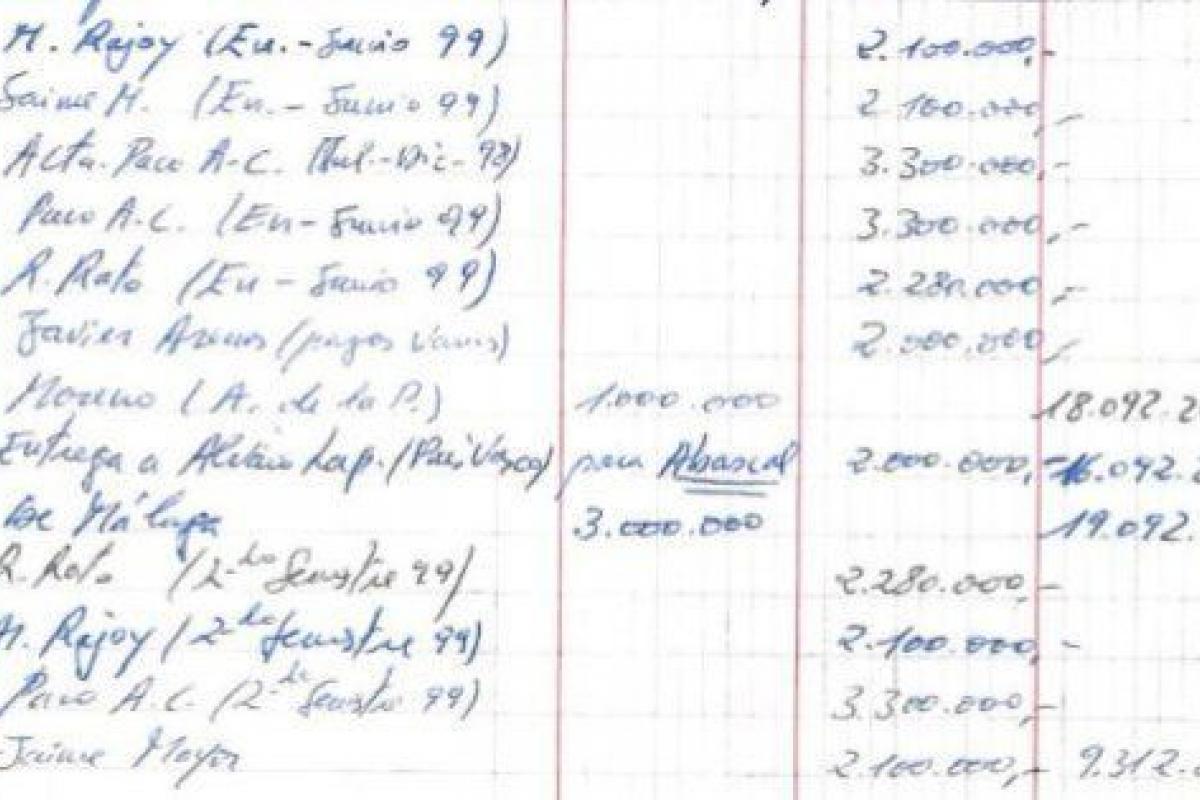 M. Rajoy (En.-Junio 99) 2.100.000,-
Jaime M. (En.- Junio 99) 2.100.000,-
Acta. Paco A-C. Jul.-Dic-98) 3.300.000,-
Paco A.C. (En-Junio 99) 3.300.000,-
R. Rato (En - Junio 99) 2.280.000,-
Javier Arenas (pagos varios) 2.000.000,-
Moreno (A. de la P.) 1.000.000 18.092.2
Entrega a Alvaro Lap. (País Vasco) para Abascal 2.000.000,- 16.092.2
de Málaga 3.000.000 19.092.
R. Rato (2do Semestre 99) 2.280.000,-
M. Rajoy (2do Semestre 99) 2.100.000,-
Paco A.C. (2do Semestre 99) 3.300.000,-
Jaime Mayor 2.100.000,- 9.312.